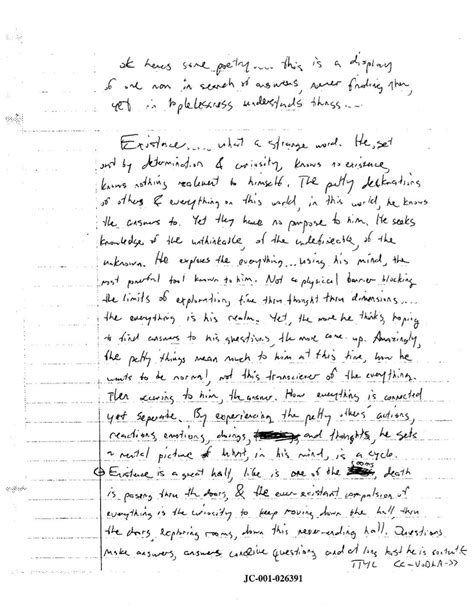 ok heres some poetry.... this is a display
of one man in search of answers, never finding them,
yet in hopelessness understands things...
Existence..... what a strange word. He, set
out by determination & curiosity, knows no existence,
knows nothing relevent to himself. The petty declarations
of others & everything on this world, in this world, he knows
the answers to. Yet they have no purpose to him. He seeks
knowledge of the unthinkable, of the undefineable, of the
unknown. He explores the everything... using his mind, the
most powerful tool known to him. Not a physical barrier blocking
the limits of exploration, time thru thought thru dimensions....
the everything is his realm. Yet, the more he thinks, hoping
to find answers to his questions, the more come up. Amazingly,
the petty things mean much to him at this time, how he
wants to be normal, not this transciever of the everything.
Then occuring to him, the answer. How everything is connected
yet seperate. By experiencing the petty others' actions,
reactions, emotions, doings, and thoughts, he gets
a mental picture of what, in his mind, is a cycle.
Existence is a great hall, life is one of the rooms, death
is passing thru the doors, & the ever-existant compulsion of
everything is the curiosity to keep moving down the hall, thru
the doors, exploring rooms, down this never-ending hall. Questions
make answers, answers conceive questions, and at long last he is content.
TTYL <<-VoDkA->>
JC-001-026391